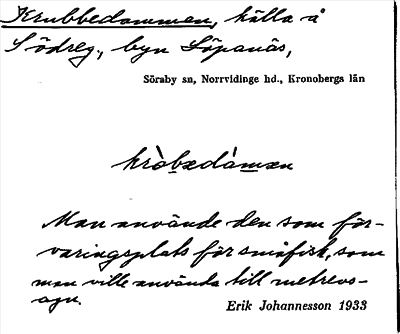 Krubbedammen, källa å
Södreg., byn Löpanäs,
Söraby sn, Norrvidinge hd., Kronobergs län
kràbədàmən
Man använde den som för-
varingsplats för småfisk, som
man ville använda till metrevs-
agn.
Erik Johannesson 1933